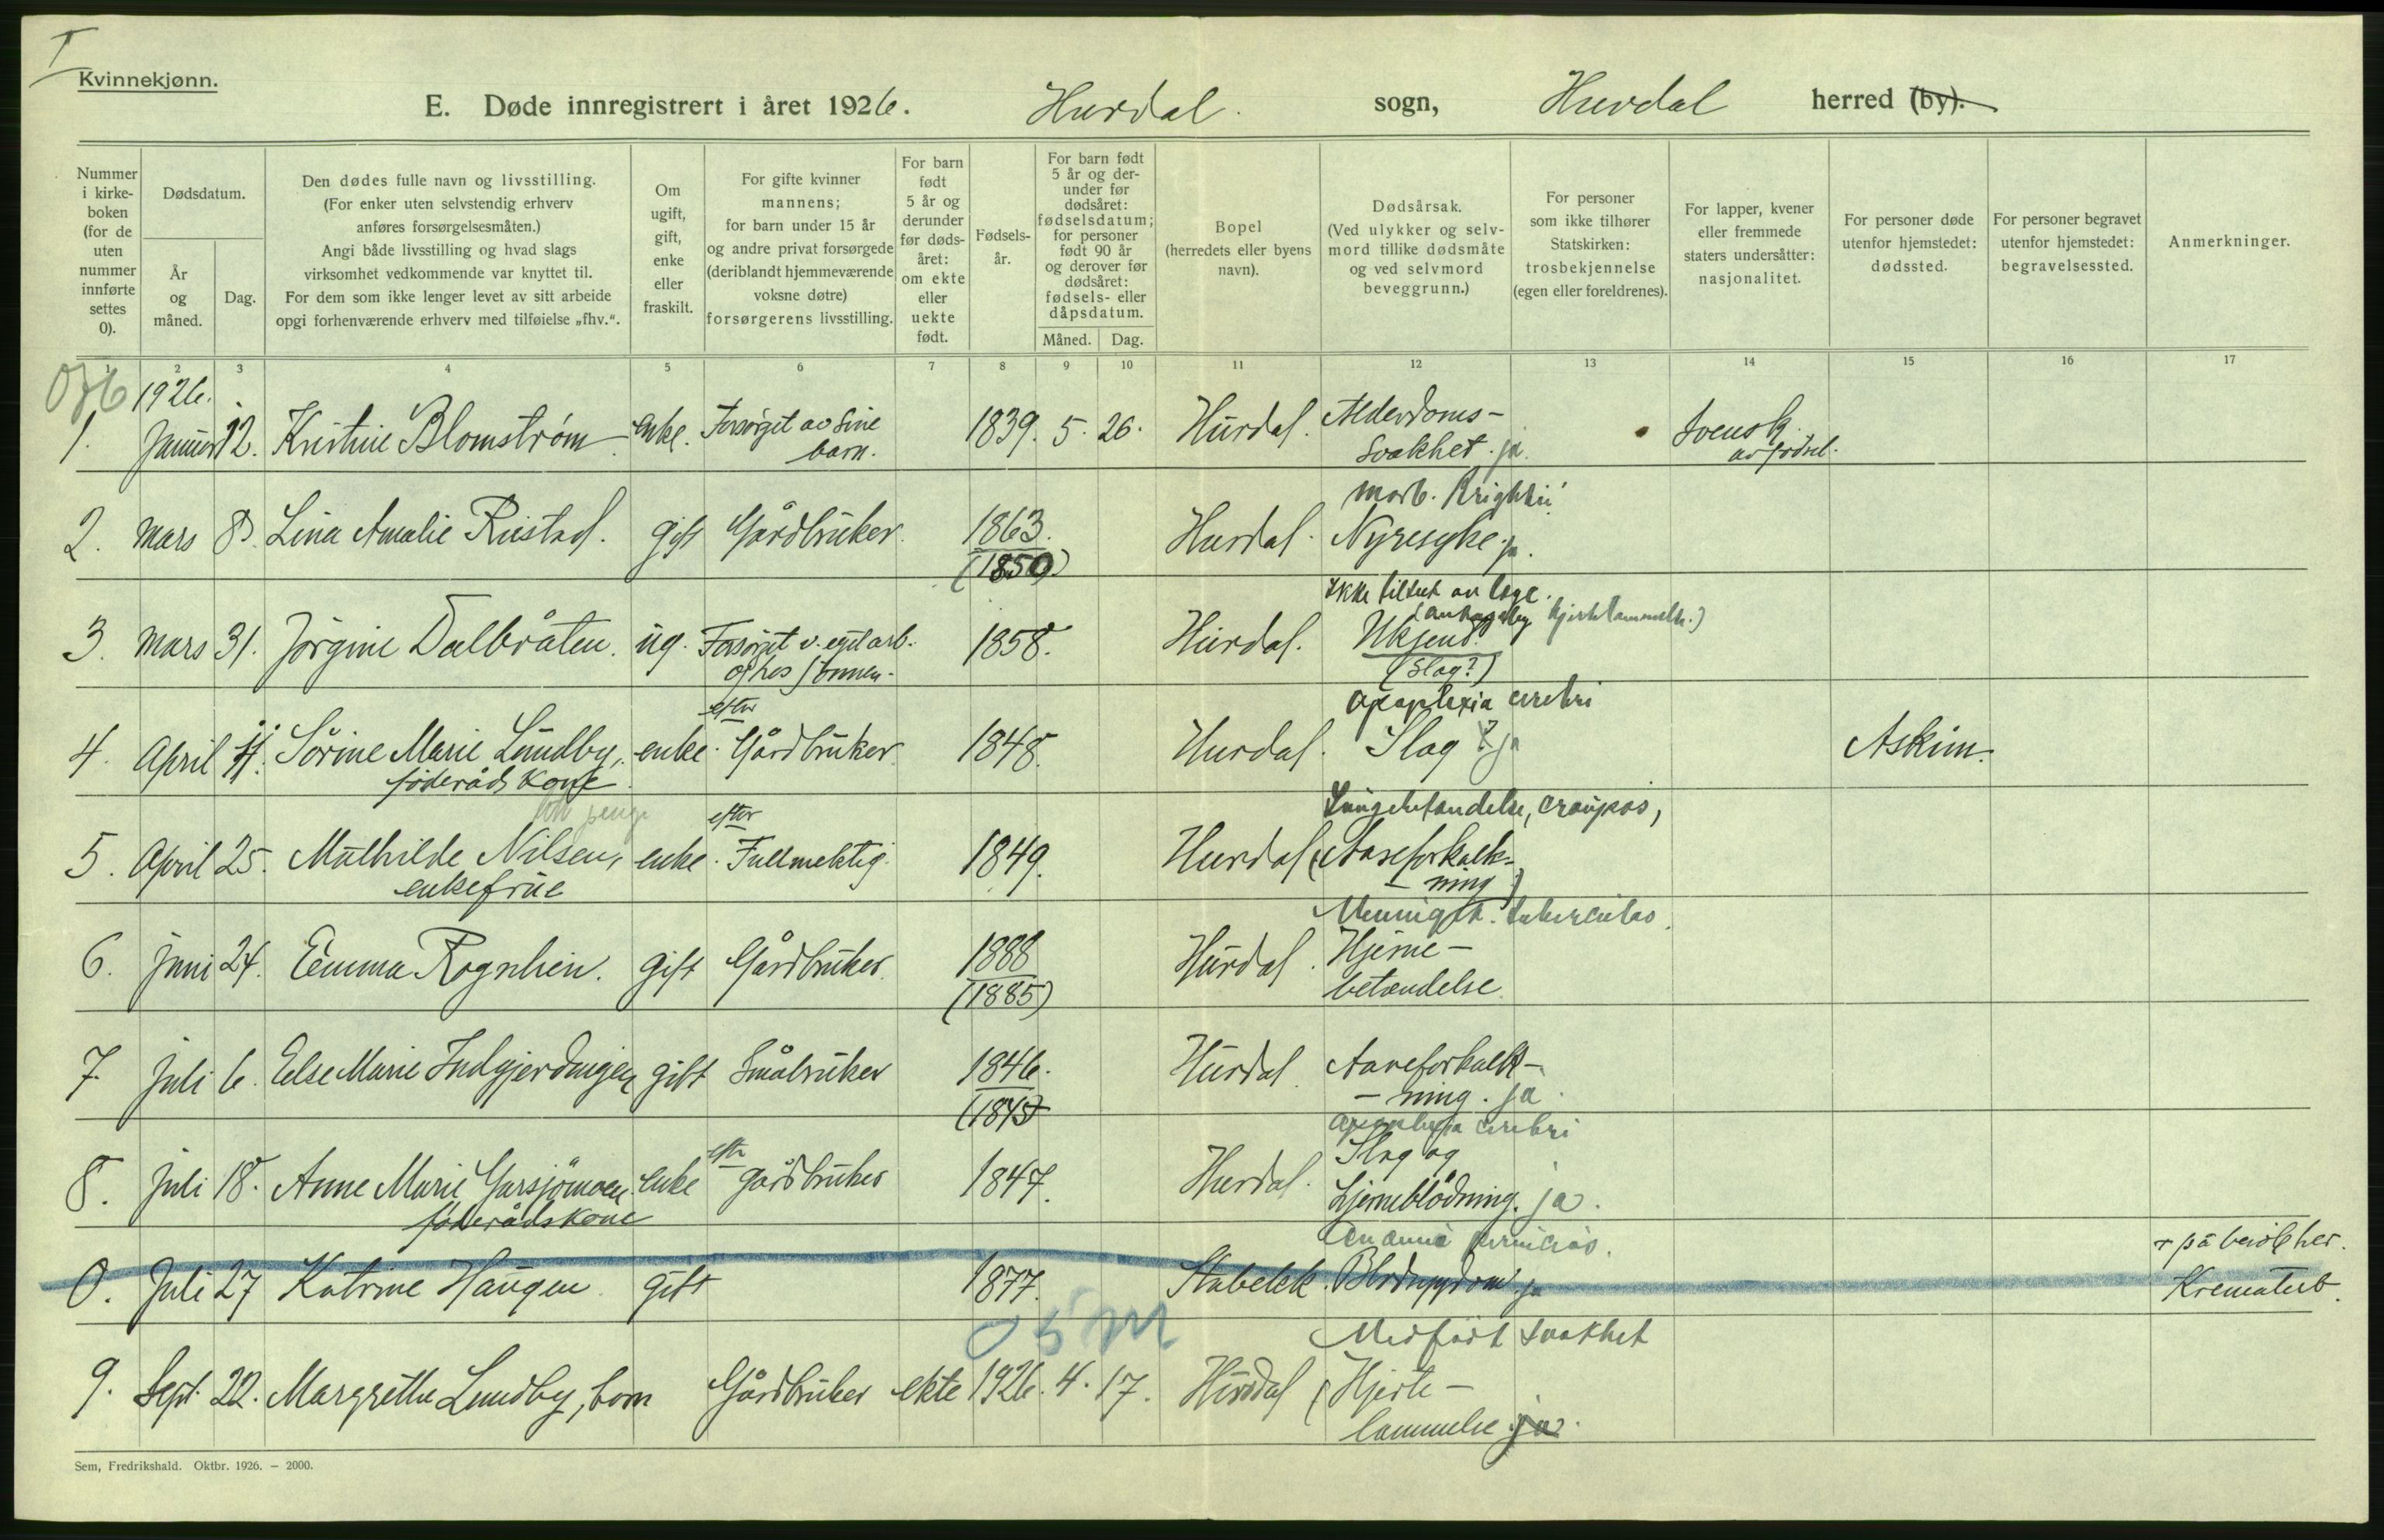 I
Kvinnekjønn.
E. Døde innregistrert i året 1926. Hurdal. sogn, Hurdal herred (by).
Nummer i kirke- boken (for de uten nummer innførte settes 0).
Dødsdatum.
År og måned.
Dag.
Den dødes fulle navn og livsstilling.
(For enker uten selvstendig erhverv
anføres forsørgelsesmåten.)
Angi både livsstilling og hvad slags
virksomhet vedkommende var knyttet til.
For dem som ikke lenger levet av sitt arbeide
opgi forhenværende erhverv med tilføielse „fhv.“.
Om ugift, gift, enke eller fraskilt.
For gifte kvinner
mannens;
for barn under 15 år
og andre privat forsørgede
(deriblandt hjemmeværende
voksne døtre)
forsørgerens livsstilling.
For barn født 5 år og derunder før døds- året: om ekte eller uekte født.
Fødsels- år.
For barn født
5 år og der-
under før
dødsåret:
fødselsdatum;
for personer
født 90 år
og derover før
dødsåret:
fødsels- eller
dåpsdatum.
Måned. Dag.
Bopel
(herredets eller byens
navn).
Dødsårsak.
(Ved ulykker og selv-
mord tillike dødsmåte
og ved selvmord
beveggrunn.)
For personer
som ikke tilhører
Statskirken:
trosbekjennelse
(egen eller foreldrenes).
For lapper, kvener
eller fremmede
staters undersåtter:
nasjonalitet.
For personer døde
utenfor hjemstedet:
dødssted.
For personer begravet
utenfor hjemstedet:
begravelsessted.
Anmerkninger.
1 2 3 4 5 6 7 8 9 10 11 12 13 14 15 16 17
036
1926.
1. Januar 12. Kristine Blomstrøm enke. Forsørget av sine 1839. 5. 26. Hurdal. Alderdoms- Svensk
barn. svakhet. ja. av fødsel.
morb. Brightii
2. Mars 8. Lina Amalie Rustad. gift Gårdbruker. 1863. Hurdal. Nyresyke. ja.
(1850)
Ikke tilset av lege.
(antagelig hjertelammelse.)
3. Mars 31. Jørgine Dalbråten. ug. Forsørget v. eget arb. 1858. Hurdal. Ukjend.
og hos sønnen. (Slag?)
efter apoplexia cerebri
4. April 11. Sørine Marie Lundby, enke. Gårdbruker 1848. Hurdal. Slag ja Askim.
føderådskone
efter Lungebetændelse, croupøs,
5. April 25. Mathilde Nilsen, enke. Fullmektig. 1849. Hurdal (Aareforkalk-
enkefrue - ning)
Meningit. tuberculos.
6. Juni 24. Emma Rognlien. gift Gårdbruker. 1888 Hurdal. Hjerne-
(1885) betændelse.
7. Juli 6. Else Marie Indgjerdingen gift Småbruker 1846. Hurdal. Aareforkalk-
- ning. ja.
apoplexia cerebri
efter Slag og
8. Juli 18. Anne Marie Garsjømoen. enke gårdbruker 1847. Hurdal. hjerneblødning. ja.
føderådskone
0. Juli 27 Katrine Haugen. gift 1877. Stabekk. ja
Krematub.
Medfødt svakhet
9. Sept. 22. Margrethe Lundby, barn Gårdbruker ekte 1926. 4. 17. Hurdal (Hjerte-
lammelse ja.
Sem, Fredrikshald. Oktbr. 1926. – 2000.